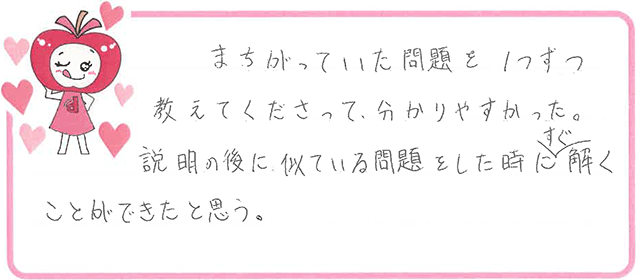 まちがっていた問題を1つずつ
教えてくださって、分かりやすかった。
説明の後に、似ている問題をした時にすぐ解く
ことができたと思う。